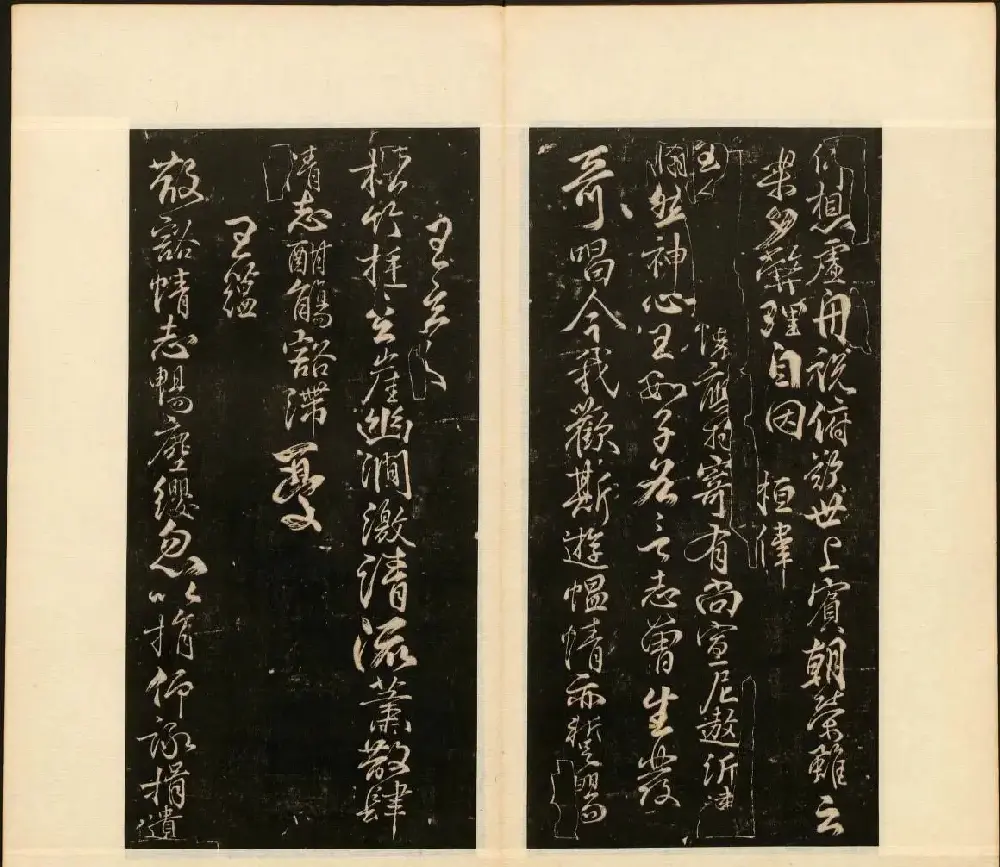 仰想虛舟説俯歎世上賓朝榮雖云
樂夕弊理自因 桓偉
懷應物寄有尚宣尼遨沂津
翛然神心王數子各言志曾生發
奇唱今我歡斯遊慍情亦蹔暢
王玄之
松竹挺巖崖幽澗激清流蕭散肆
情志酣觴豁滯憂
王蘊
散豁情志暢塵纓忽以捐仰詠挹遺